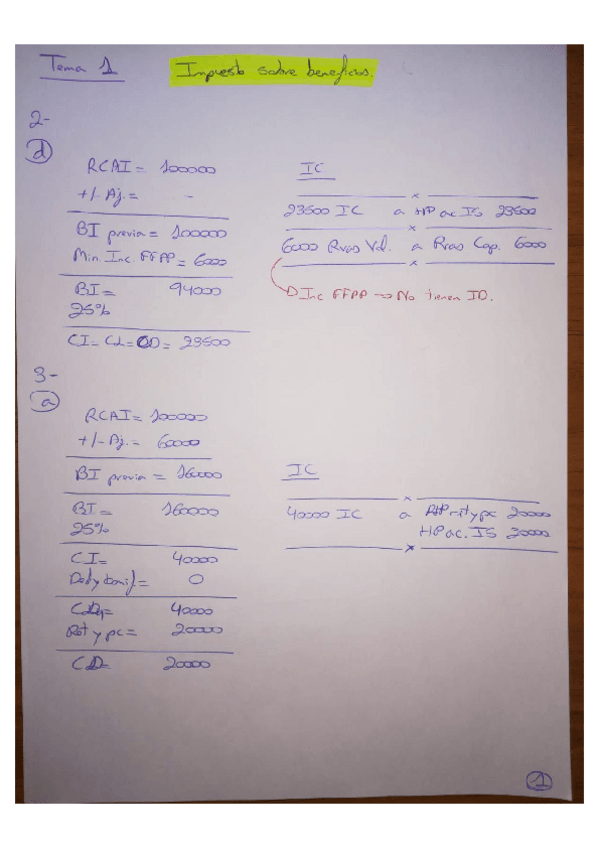 Tema 1 Impuesto sobre beneficios.
2-
d
RCAI = 100000
+/- Aj. = -
BI previa = 100000
Min. Inc. FFPP = 6000
BI = 94000
25%
CI = CL = CD = 23500
IC
23500 IC a HP ac IS 23500
6000 Rvas Vol. a Rvas Cap. 6000
Inc FFPP → No tienen ID.
3-
a
RCAI = 100000
+/- Aj. = 60000
BI previa = 160000
BI = 160000
25%
CI = 40000
Ded y bonif = 0
CL = 40000
Ret y pc = 20000
CD = 20000
IC
40000 IC a HP ret y pc 20000
HP ac. IS 20000
1